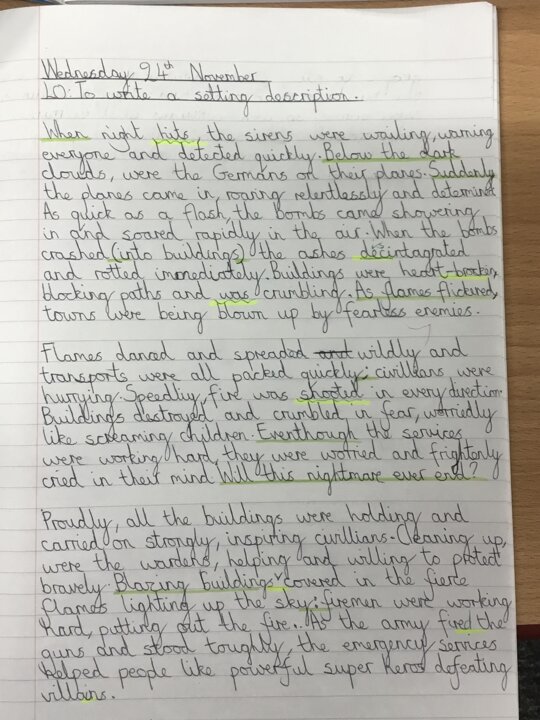 Wednesday 24th November
LO: To write a setting description.
When night hits, the sirens were wailing, warning
everyone and detected quickly. Below the dark
clouds, were the Germans on their planes. Suddenly
the planes came in, roaring relentlessly and determined
As quick as a flash, the bombs came showering
in and soared rapidly in the air. When the bombs
crashed (into buildings) the ashes decintagrated
and rotted immediately. Buildings were heart-broken,
blocking paths and was crumbling. As flames flickered,
towns were being blown up by fearless enemies.
Flames danced and spreaded and wildly and
transports were all packed quickly; civillians were
hurrying. Speedily, fire was shooted in every direction.
Buildings destroyed and crumbled in fear, worriedly
like screaming children. Eventhough the services
were working hard, they were worried and frightenly
cried in their mind. Will this nightmare ever end?
Proudly, all the buildings were holding and
carried on strongly, inspiring civillians. Cleaning up,
were the wardens, helping and willing to protect
bravely. Blazing buildings covered in the fierce
flames lighting up the sky; firemen were working
hard, putting out the fire. As the army fired the
guns and stood toughly, the emergency services
helped people like powerful super heros defeating
villains.